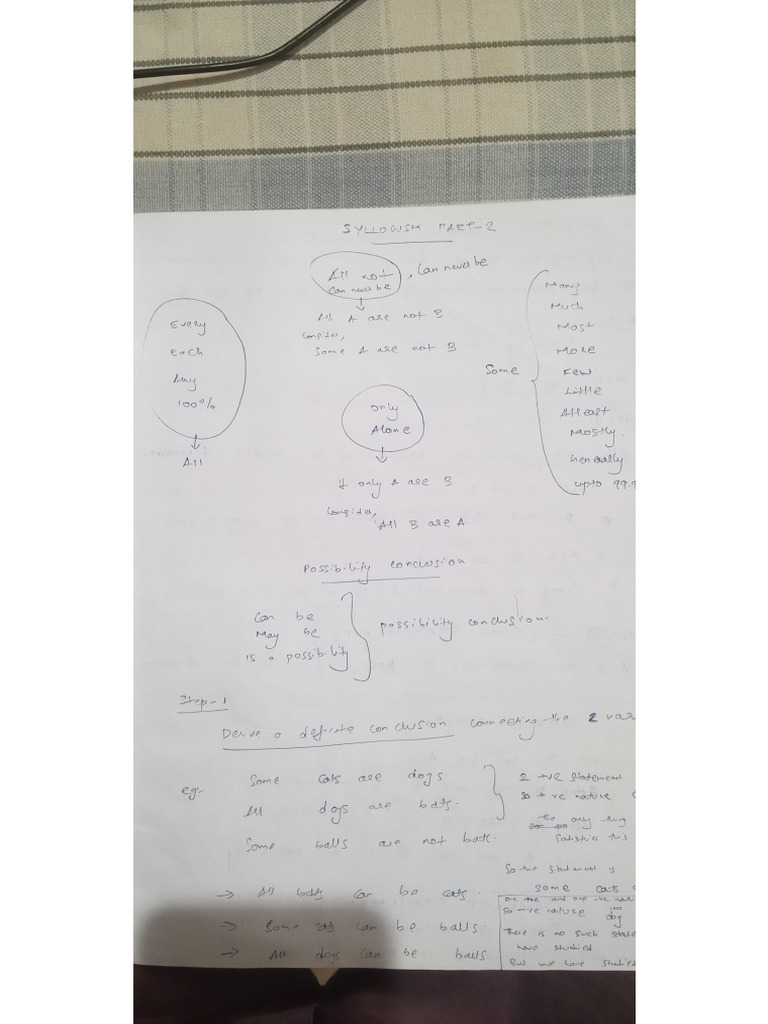 SYLLOGISM PART-2
All not, can never be
can never be
All A are not B
consider,
Some A are not B
Every
Each
Any
100%
All
Some
Many
Much
Most
More
Few
Little
Atleast
Mostly.
Generally
upto 99.9
only
Alone
if only A are B
consider,
All B are A
Possibility conclusion
Can be
May be
is a possibility
possibility conclusion.
Step-1
Derive a definite conclusion connecting the 2 var
eg-
Some cats are dogs
All dogs are bats.
Some balls are not bats.
2 +ve statement
so +ve nature
only thing
satisfies this
So the statement is
some cats
→ All bats can be cats.
→ Some cats can be balls
→ All dogs can be balls
one +ve and one -ve
So -ve nature
dog
there is no such state
have studied
But we have studied